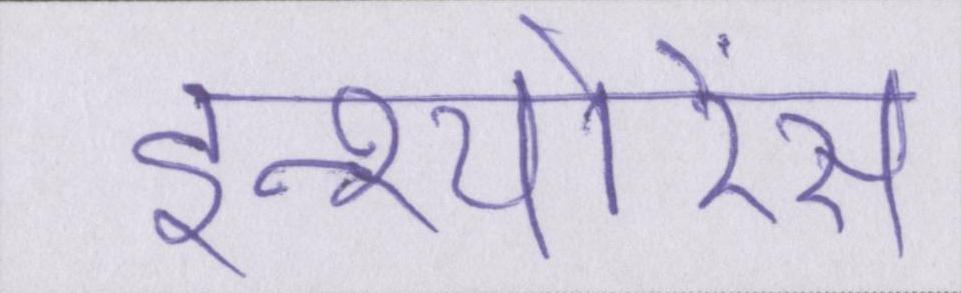 इन्श्योरेंस